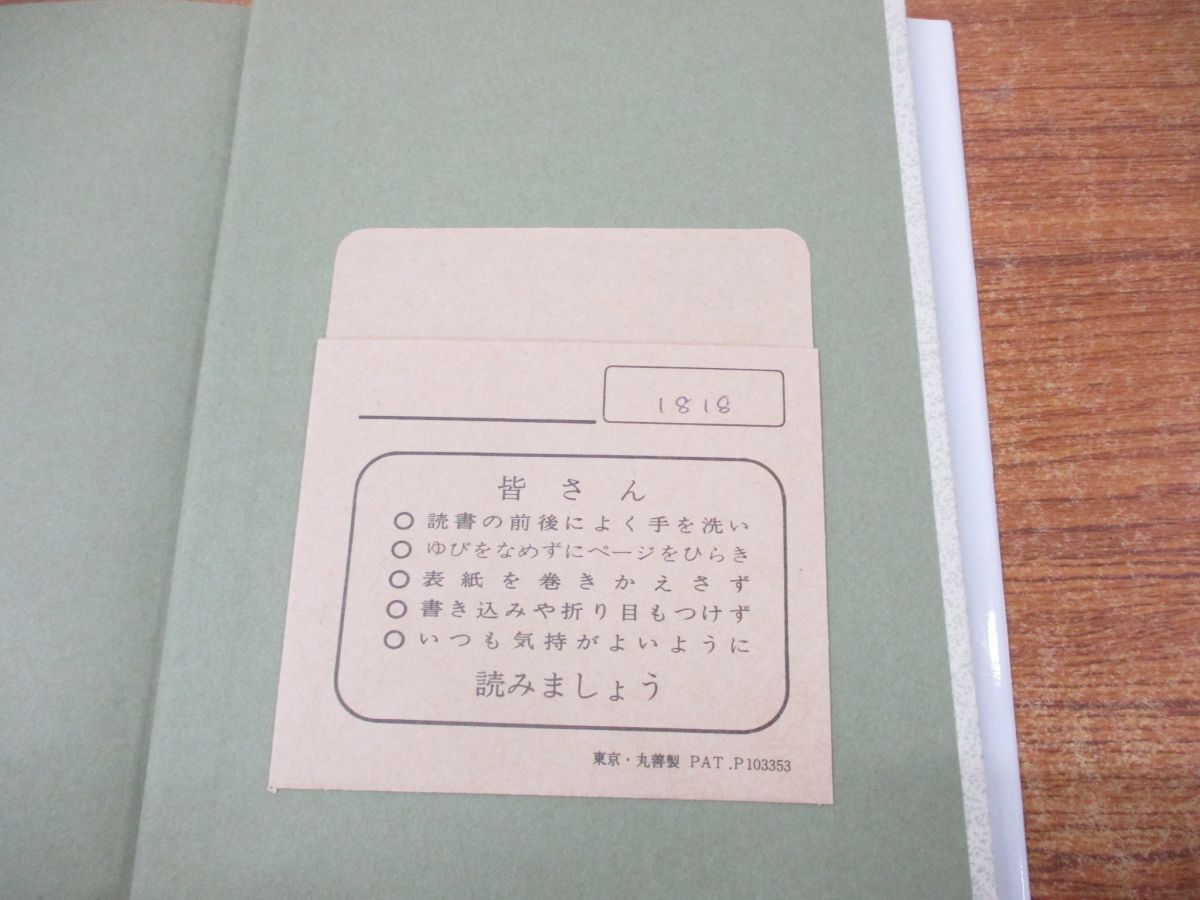 1818
皆さん
○ 読書の前後によく手を洗い
○ ゆびをなめずにページをひらき
○ 表紙を巻きかえさず
○ 書き込みや折り目もつけず
○ いつも気持がよいように
読みましょう
東京・丸善製 PAT.P103353